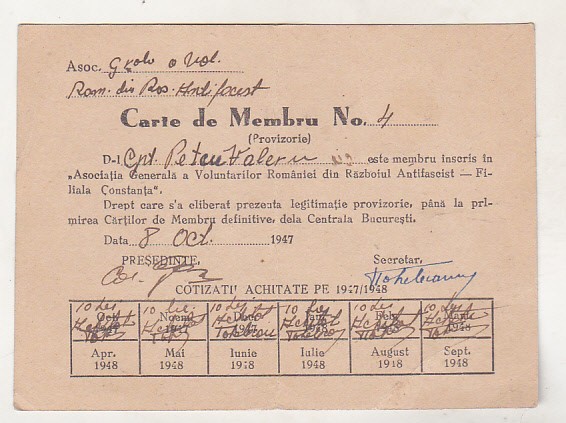 Asoc. Gralo a Vol.
Rom. din Ros. Antifacist
Carte de Membru No. 4
(Provizorie)
D-l Cpt. Petcu Valeriu este membru inscris în
„Asociația Generala a Voluntarilor României din Războiul Antifascist — Fi-
liala Constanța".
Drept care s'a cliberat prezenta legitimație provizorie, până la pri-
mirea Cărților de Membru definitive, dela Centrala București.
Data 8 Oct. 1947
PREȘEDINTE, Secretar,
COTIZATII ACHITATE PE 1947/1948
10 Lei 10 Lei 10 Lei 10 Lei 10 Lei 10 Lei
Apr. Mai Iunie Iulie August Sept.
1948 1948 1948 1948 1948 1948